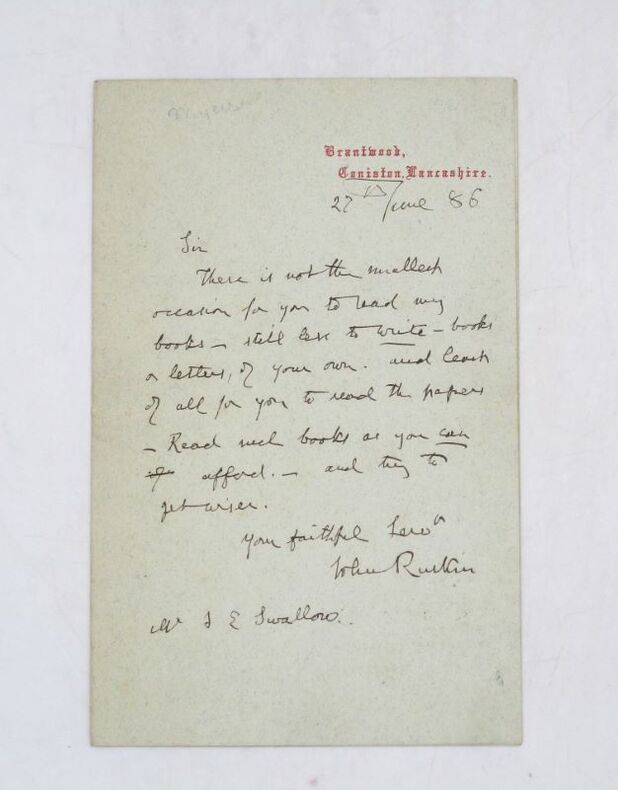 Brantwood,
Coniston, Lancashire.
27th June 86
Sir
There is not the smallest
occasion for you to read my
books – still less to write – books
or letters, of your own. and least
of all for you to read the papers
– Read such books as you can
afford. – and try to
get wiser.
Your faithful Servt
John Ruskin
Mr S E Swallow.